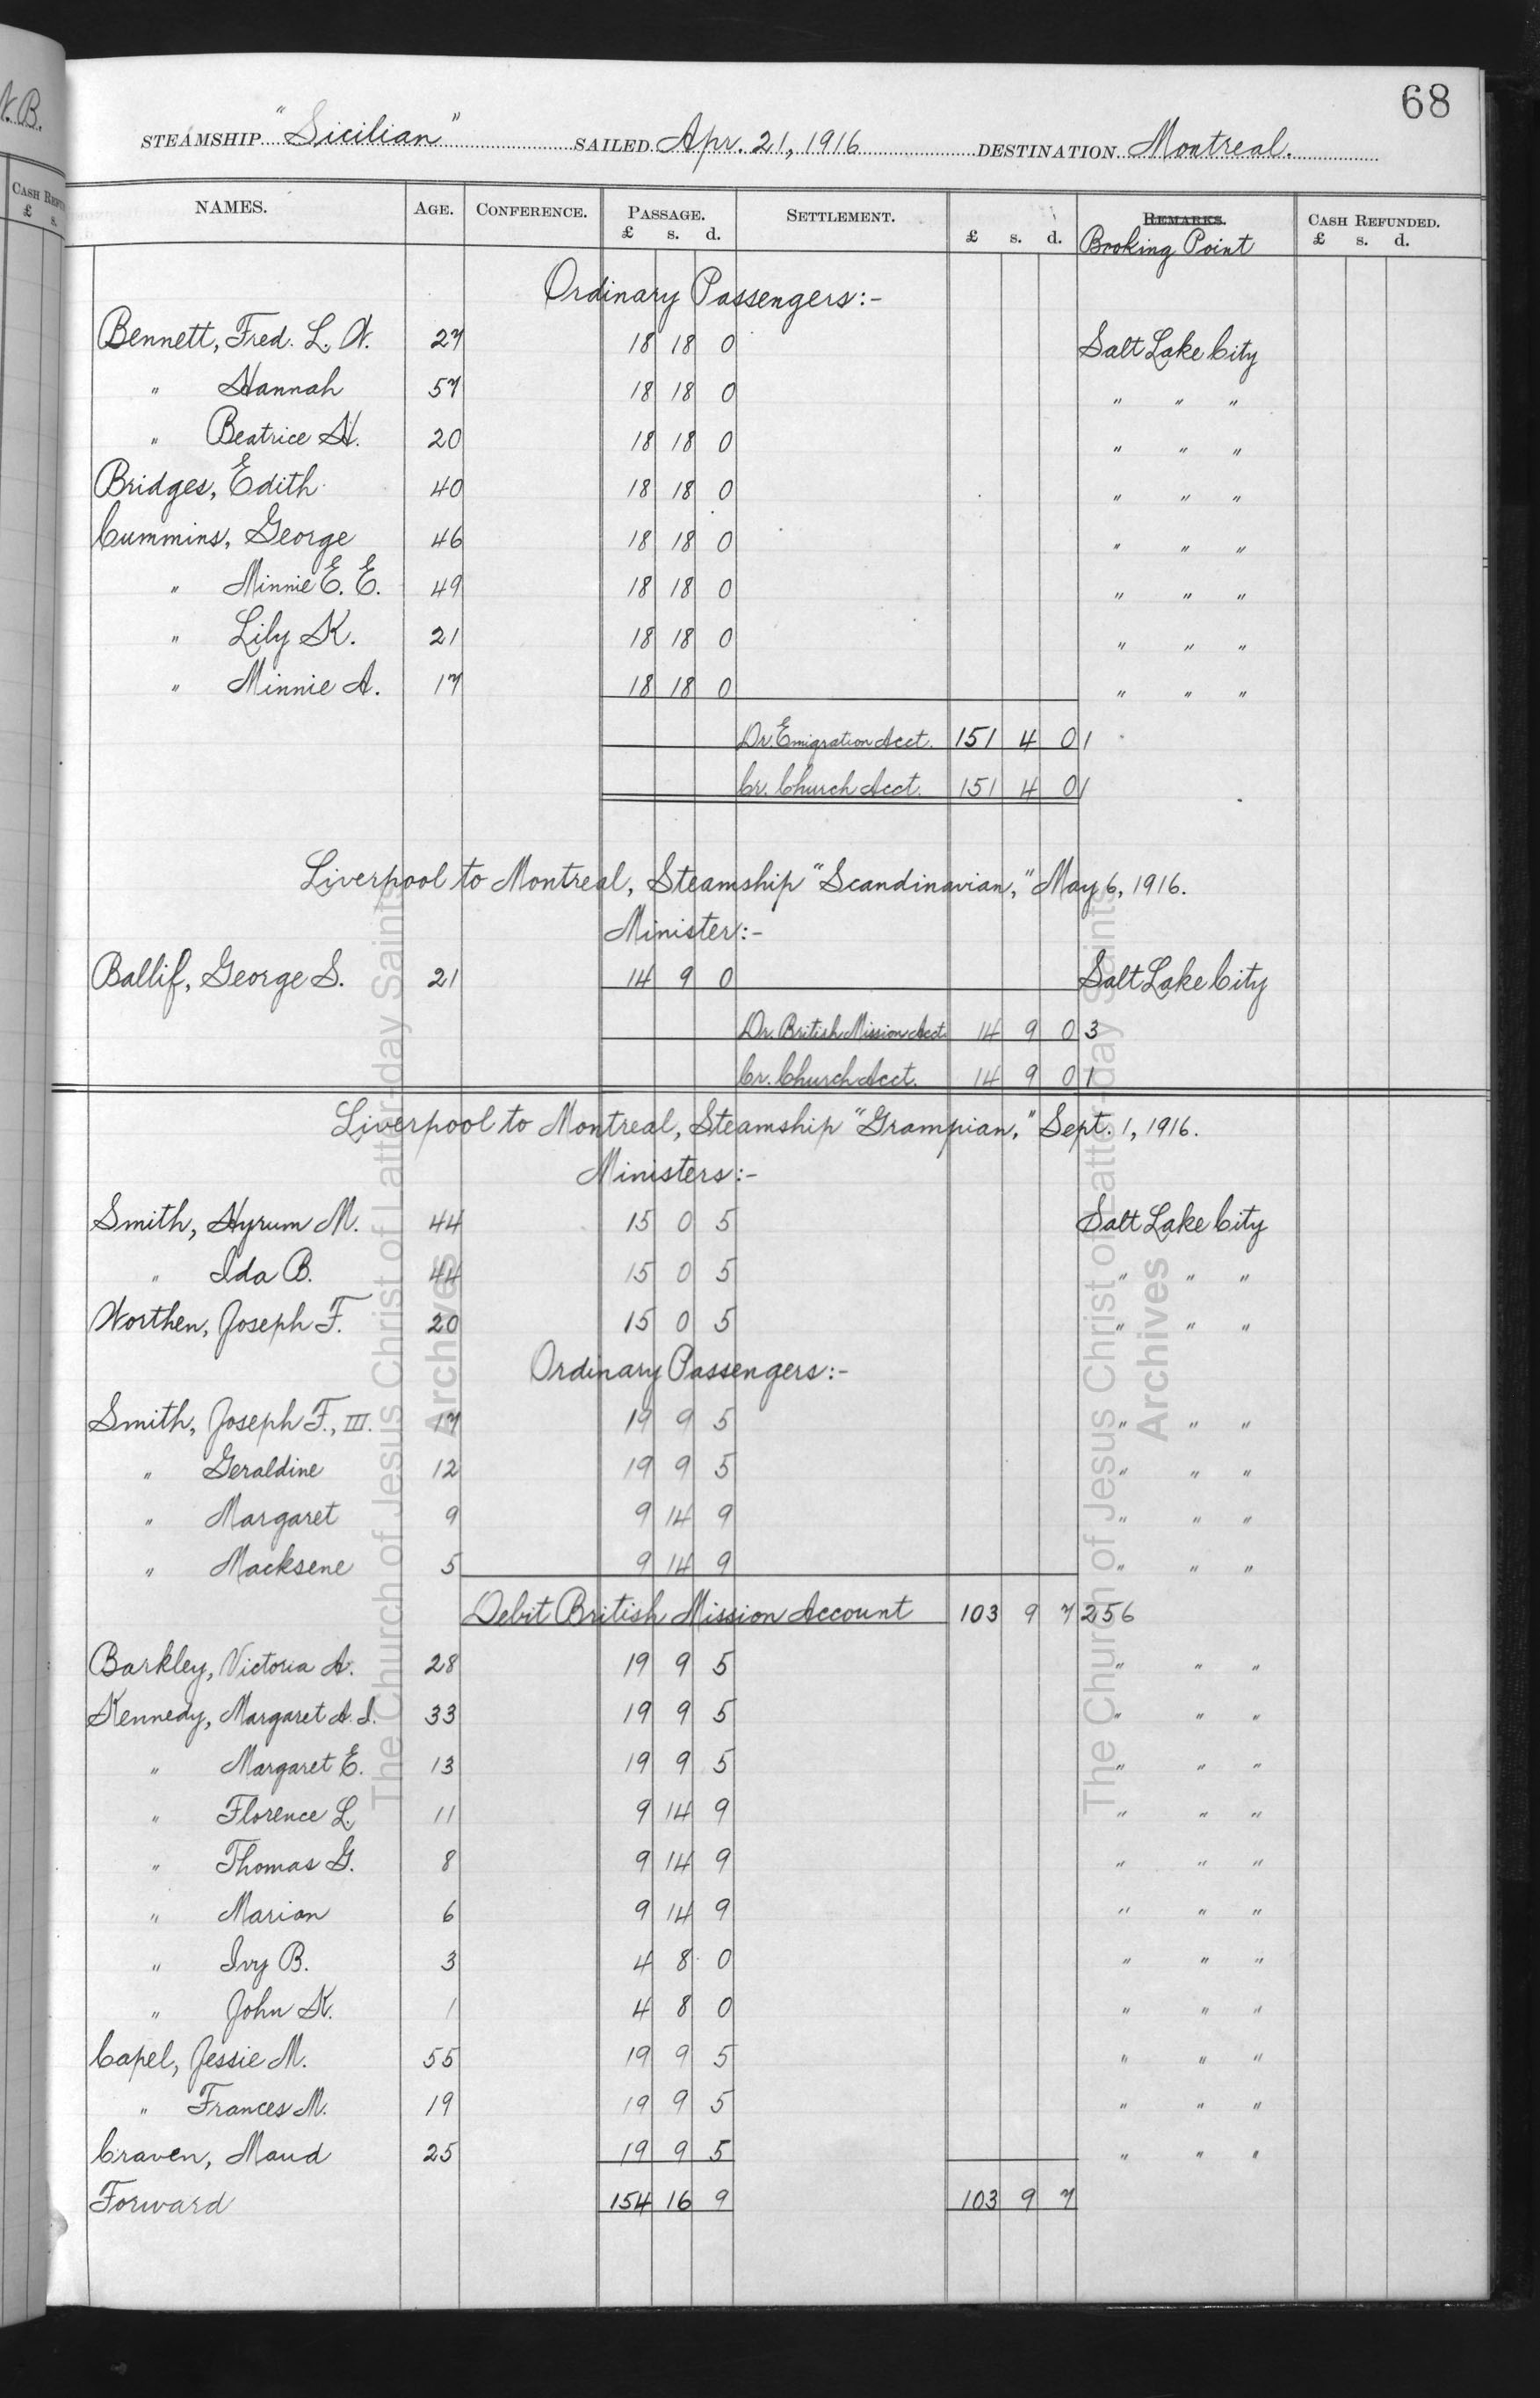 68
STEAMSHIP "Sicilian" SAILED Apr. 21, 1916 DESTINATION Montreal.
NAMES. AGE. CONFERENCE. PASSAGE. £ s. d. SETTLEMENT. £ s. d. REMARKS. Booking Point CASH REFUNDED. £ s. d.
Ordinary Passengers:-
Bennett, Fred. L. W. 27 18 18 0 Salt Lake City
" Hannah 57 18 18 0 " " "
" Beatrice H. 20 18 18 0 " " "
Bridges, Edith 40 18 18 0 " " "
Cummins, George 46 18 18 0 " " "
" Minnie E. E. 49 18 18 0 " " "
" Lily K. 21 18 18 0 " " "
" Minnie A. 17 18 18 0 " " "
Dr. Emigration Acct. 151 4 0 1
Cr. Church Acct. 151 4 0 1
Liverpool to Montreal, Steamship "Scandinavian," May 6, 1916.
Minister:-
Ballif, George S. 21 14 9 0 Salt Lake City
Dr. British Mission Acct. 14 9 0 3
Cr. Church Acct. 14 9 0 1
Liverpool to Montreal, Steamship "Grampian," Sept. 1, 1916.
Ministers:-
Smith, Hyrum M. 44 15 0 5 Salt Lake City
" Ida B. 44 15 0 5 " " "
Worthen, Joseph F. 20 15 0 5 " " "
Ordinary Passengers:-
Smith, Joseph F., III. 17 19 9 5 " " "
" Geraldine 12 19 9 5 " " "
" Margaret 9 9 14 9 " " "
" Macksene 5 9 14 9 " " "
Debit British Mission Account 103 9 7 256
Barkley, Victoria A. 28 19 9 5 " " "
Kennedy, Margaret A. I. 33 19 9 5 " " "
" Margaret E. 13 19 9 5 " " "
" Florence L. 11 9 14 9 " " "
" Thomas G. 8 9 14 9 " " "
" Marion 6 9 14 9 " " "
" Ivy B. 3 4 8 0 " " "
" John K. 1 4 8 0 " " "
Capel, Jessie M. 55 19 9 5 " " "
" Frances M. 19 19 9 5 " " "
Craven, Maud 25 19 9 5 " " "
Forward 154 16 9 103 9 7
The Church of Jesus Christ of Latter-day Saints
Archives
The Church of Jesus Christ of Latter-day Saints
Archives